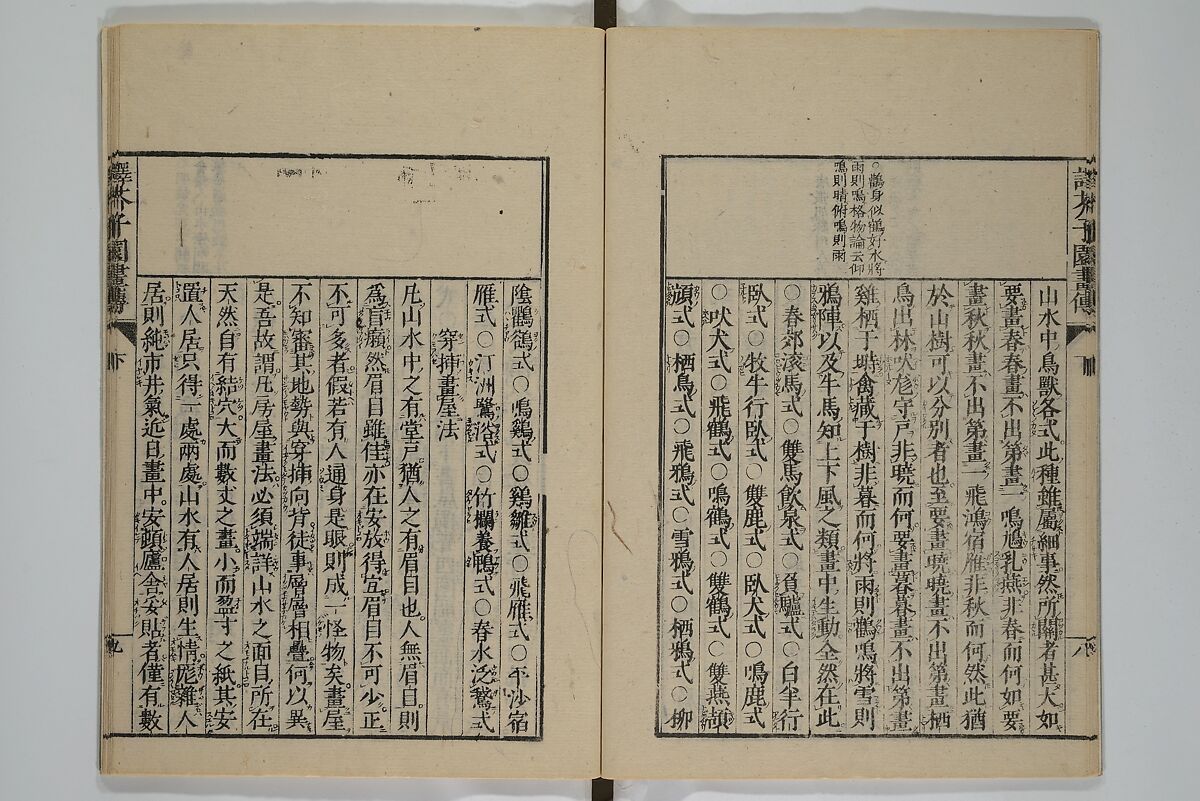 譯芥子園畫傳
下
八
○鸛身似鶴好水將
雨則鳴格物論云仰
鳴則晴俯鳴則雨
山水中鳥獸各式此種雖屬細事然所關者甚大如
要畫春春畫不出第畫一鳴鳩乳燕非春而何如要
畫秋秋畫不出第畫一飛鴻宿雁非秋而何然此猶
於山樹可以分別者也至要畫曉曉畫不出第畫栖
鳥出林吠尨守戸非曉而何要畫暮暮畫不出第畫
雞栖于塒禽藏于樹非暮而何將雨則鸛鳴將雪則
鴉陣以及牛馬知上下風之類畫中生動全然在此
○春郊滚馬式○雙馬飲泉式○負驢式○白羊行
臥式○牧牛行臥式○雙鹿式○臥犬式○鳴鹿式
○吠犬式○飛鶴式○鳴鶴式○雙鶴式○雙燕頡
頏式○栖鳥式○飛鴉式○雪鴉式○栖鴉式○柳
陰鸜鵒式○鳴鷄式○鷄雛式○飛雁式○平沙宿
雁式○汀洲鷺浴式○竹欄養鴨式○春水泛鵞式
穿揷畫屋法
凡山水中之有堂戸猶人之有眉目也人無眉目則
爲盲癩然眉目雖佳亦在安放得宜眉目不可少正
不可多者假若有人通身是眼則成一怪物矣畫屋
不知審其地勢與穿揷向背徒事層層相疊何以異
是吾故謂凡房屋畫法必須端詳山水之面目所在
天然自有結穴大而數丈之畫小而盈寸之紙其安
置人居只得一處兩處山水有人居則生情厖雜人
居則純市井氣近日畫中安頓廬舍妥貼者僅有數
譯芥子園畫傳
下
九